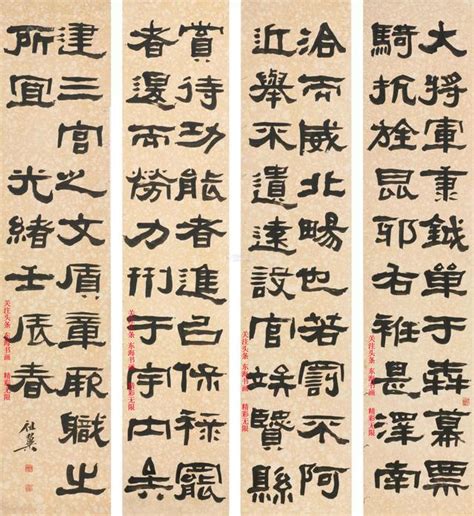 大將軍秉鉞單于犇幕票
騎抗旌昆邪右衽是澤南
洽而威北暢也若罰不阿
近舉不遺遠設官竢賢縣
賞待功能者進㠯保祿罷
者退而勞力刑于宇内矣
建三宮之文質章厥職之
所宜 光緒壬辰春
关注头条 东海书画 精彩无限
关注头条 东海书画 精彩无限
关注头条 东海书画 精彩无限
关注头条 东海书画 精彩无限